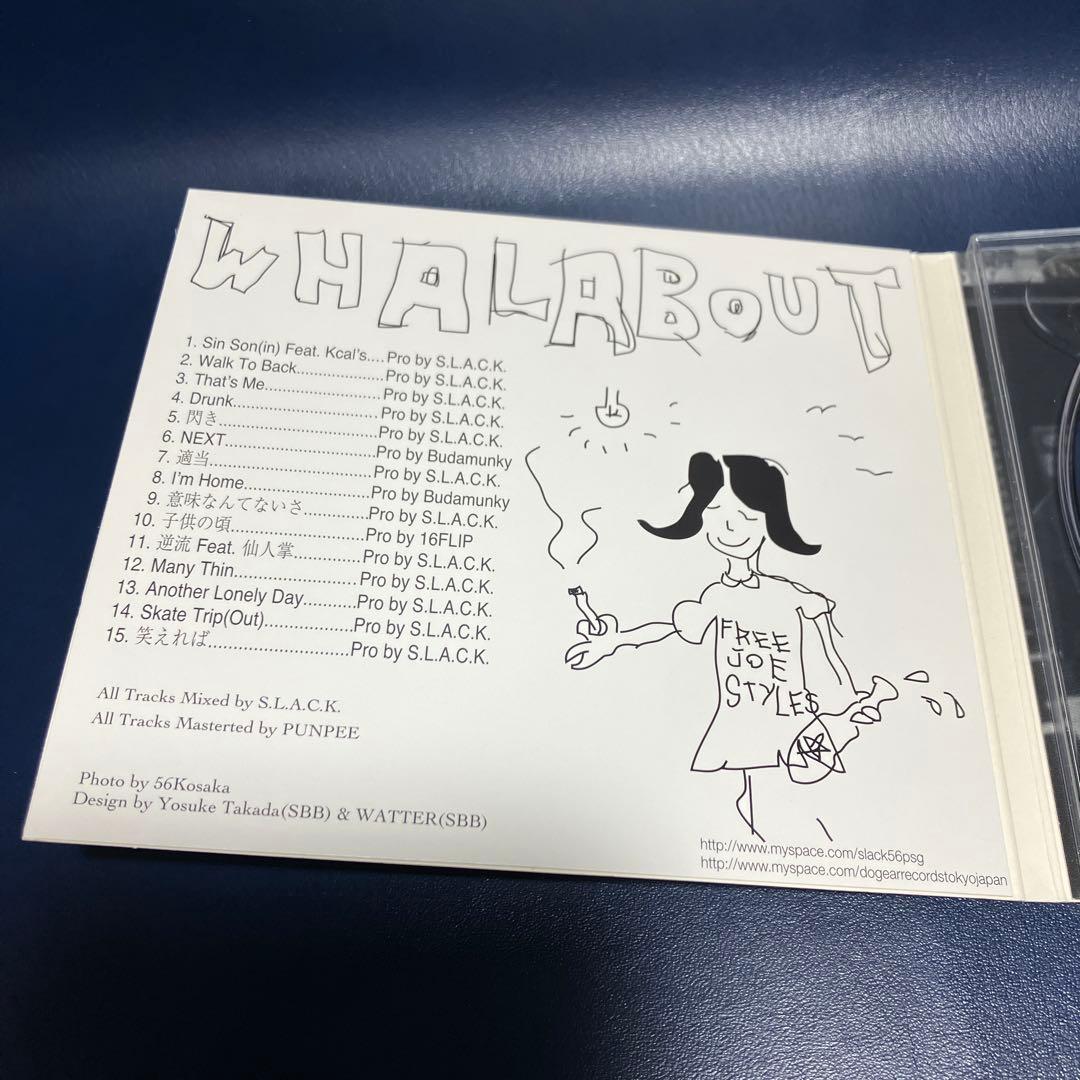 WHALABOUT
1. Sin Son(in) Feat. Kcal's....Pro by S.L.A.C.K.
2. Walk To Back....................Pro by S.L.A.C.K.
3. That's Me...........................Pro by S.L.A.C.K.
4. Drunk..................................Pro by S.L.A.C.K.
5. 閃き.....................................Pro by S.L.A.C.K.
6. NEXT...................................Pro by Budamunky
7. 適当......................................Pro by S.L.A.C.K.
8. I'm Home.............................Pro by Budamunky
9. 意味なんてないさ...............Pro by S.L.A.C.K.
10. 子供の頃...............................Pro by 16FLIP
11. 逆流 Feat. 仙人掌................Pro by S.L.A.C.K.
12. Many Thin.............................Pro by S.L.A.C.K.
13. Another Lonely Day............Pro by S.L.A.C.K.
14. Skate Trip(Out)....................Pro by S.L.A.C.K.
15. 笑えれば................................Pro by S.L.A.C.K.
FREE
JOE
STYLES
All Tracks Mixed by S.L.A.C.K.
All Tracks Masterted by PUNPEE
Photo by 56Kosaka
Design by Yosuke Takada(SBB) & WATTER(SBB)
http://www.myspace.com/slack56psg
http://www.myspace.com/dogearrecordstokyojapan